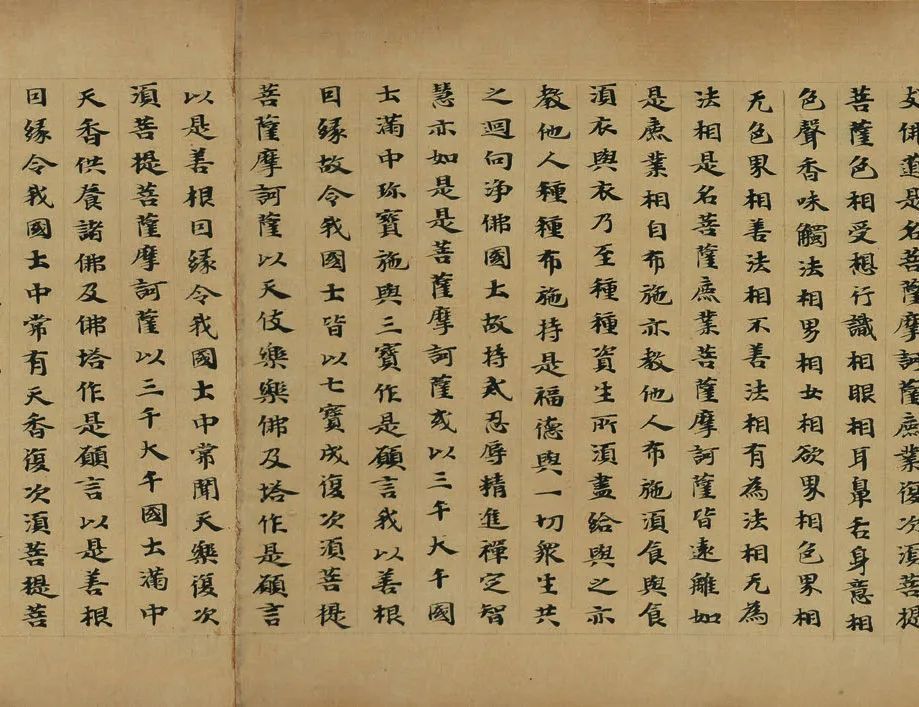 佛道是名菩薩摩訶薩麁業復次須菩提
菩薩色相受想行識相眼相耳鼻舌身意相
色聲香味觸法相男相女相欲界相色界相
无色界相善法相不善法相有為法相无為
法相是名菩薩麁業菩薩摩訶薩皆遠離如
是麁業相自布施亦教他人布施須食與食
須衣與衣乃至種種資生所須盡給與之亦
教他人種種布施持是福德與一切衆生共
之迴向淨佛國土故持戒忍辱精進禪定智
慧亦如是是菩薩摩訶薩或以三千大千國
土滿中珎寶施與三寶作是願言我以善根
因緣故令我國土皆以七寶成復次須菩提
菩薩摩訶薩以天伎樂樂佛及塔作是願言
以是善根因緣令我國土中常聞天樂復次
須菩提菩薩摩訶薩以三千大千國土滿中
天香供養諸佛及佛塔作是願言以是善根
因緣令我國土中常有天香復次須菩提菩